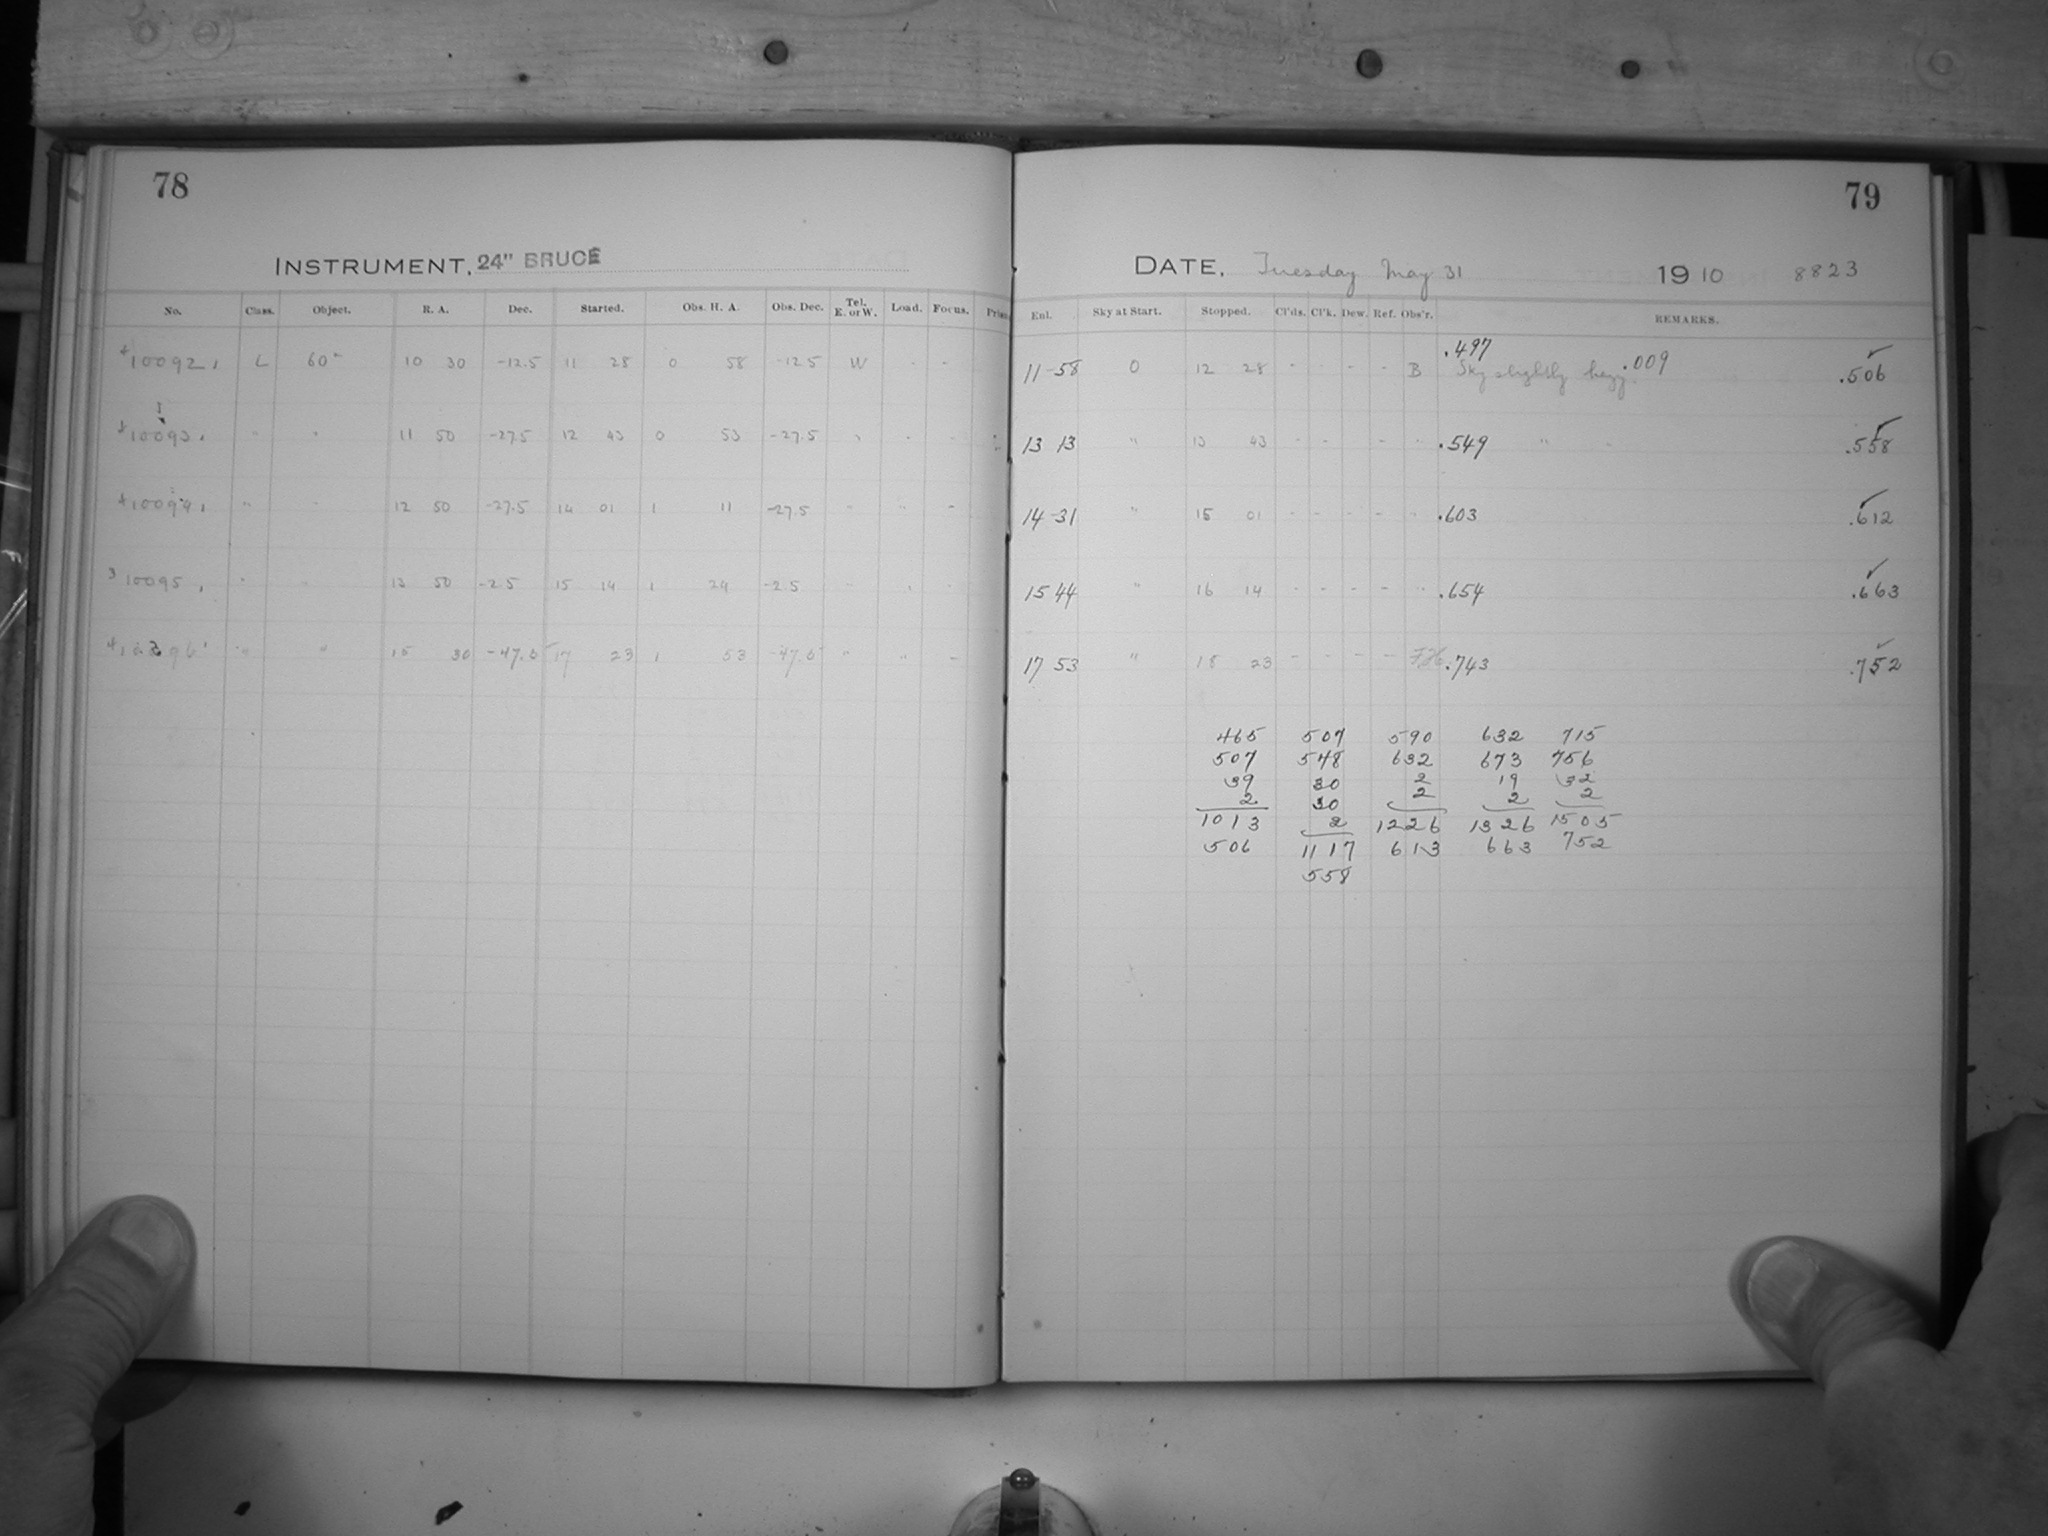 78
INSTRUMENT, 24" BRUCE
No. Class. Object. R. A. Dec. Started. Obs. H. A. Obs. Dec. Tel. E. or W. Load. Focus.
10092 L 60m 10 30 -12.5 11 28 0 58 -12.5 W - -
10093 " " 11 50 -27.5 12 43 0 53 -27.5 " - -
10094 " " 12 50 -27.5 14 01 1 11 -27.5 " " -
3 10095 " " 13 50 -2.5 15 14 1 24 -2.5 " "
" " 15 30 -47.5 17 23 1 53 -47.5 " " -
79
DATE, Tuesday May 31 1910 8823
Enl. Sky at Start. Stopped. Cl'ds. Cl'k. Dew. Ref. Obs'r. REMARKS.
11-58 0 12 28 - - - - B .497 Sky slightly hazy. .009 .506
13 13 " 13 43 - - - " .549 " " .558
14-31 " 15 01 - - - - " .603 .612
15 44 " 16 14 - - - - " .654 .663
17 53 " 18 23 - - - - .743 .752
465 507 590 632 715
507 548 632 673 756
39 30 2 19 32
2 30 2 2 2
1013 2 1226 1326 1505
506 1117 613 663 752
558